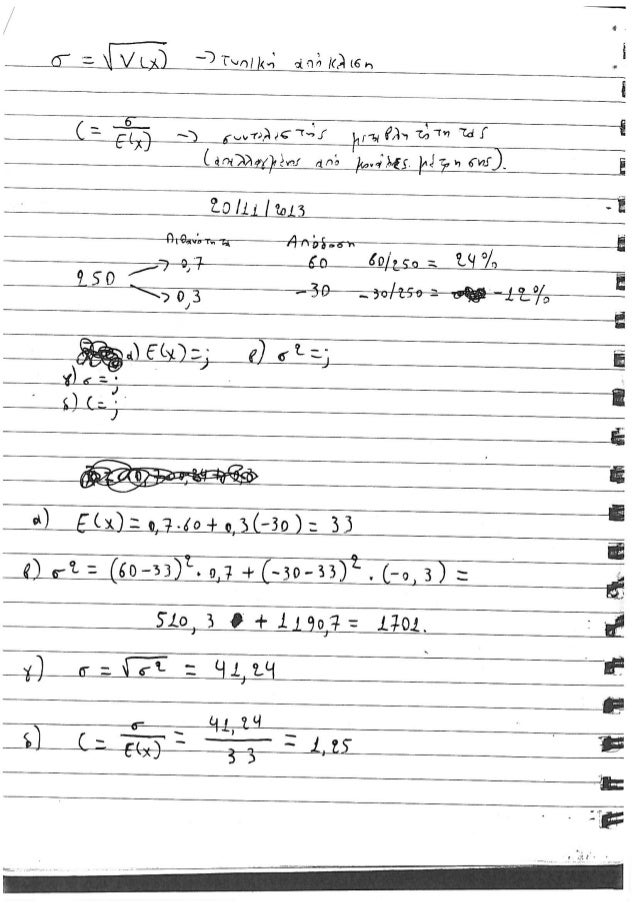 σ = √V(x) → τυπική απόκλιση
C = σ/E(x) → συντελεστής μεταβλητότητας
(απαλλαγμένης από μονάδες μέτρησης).
20/11/2013
Πιθανότητα Απόδοση
250 → 0,7 60 60/250 = 24%
→ 0,3 -30 -30/250 = -12%
α) E(x) = ; β) σ² = ;
γ) σ = ;
δ) C = ;
α) E(x) = 0,7·60 + 0,3(-30) = 33
β) σ² = (60-33)²·0,7 + (-30-33)²·(-0,3) =
510,3 + 1190,7 = 1701.
γ) σ = √σ² = 41,24
δ) C = σ/E(x) = 41,24/33 = 1,25